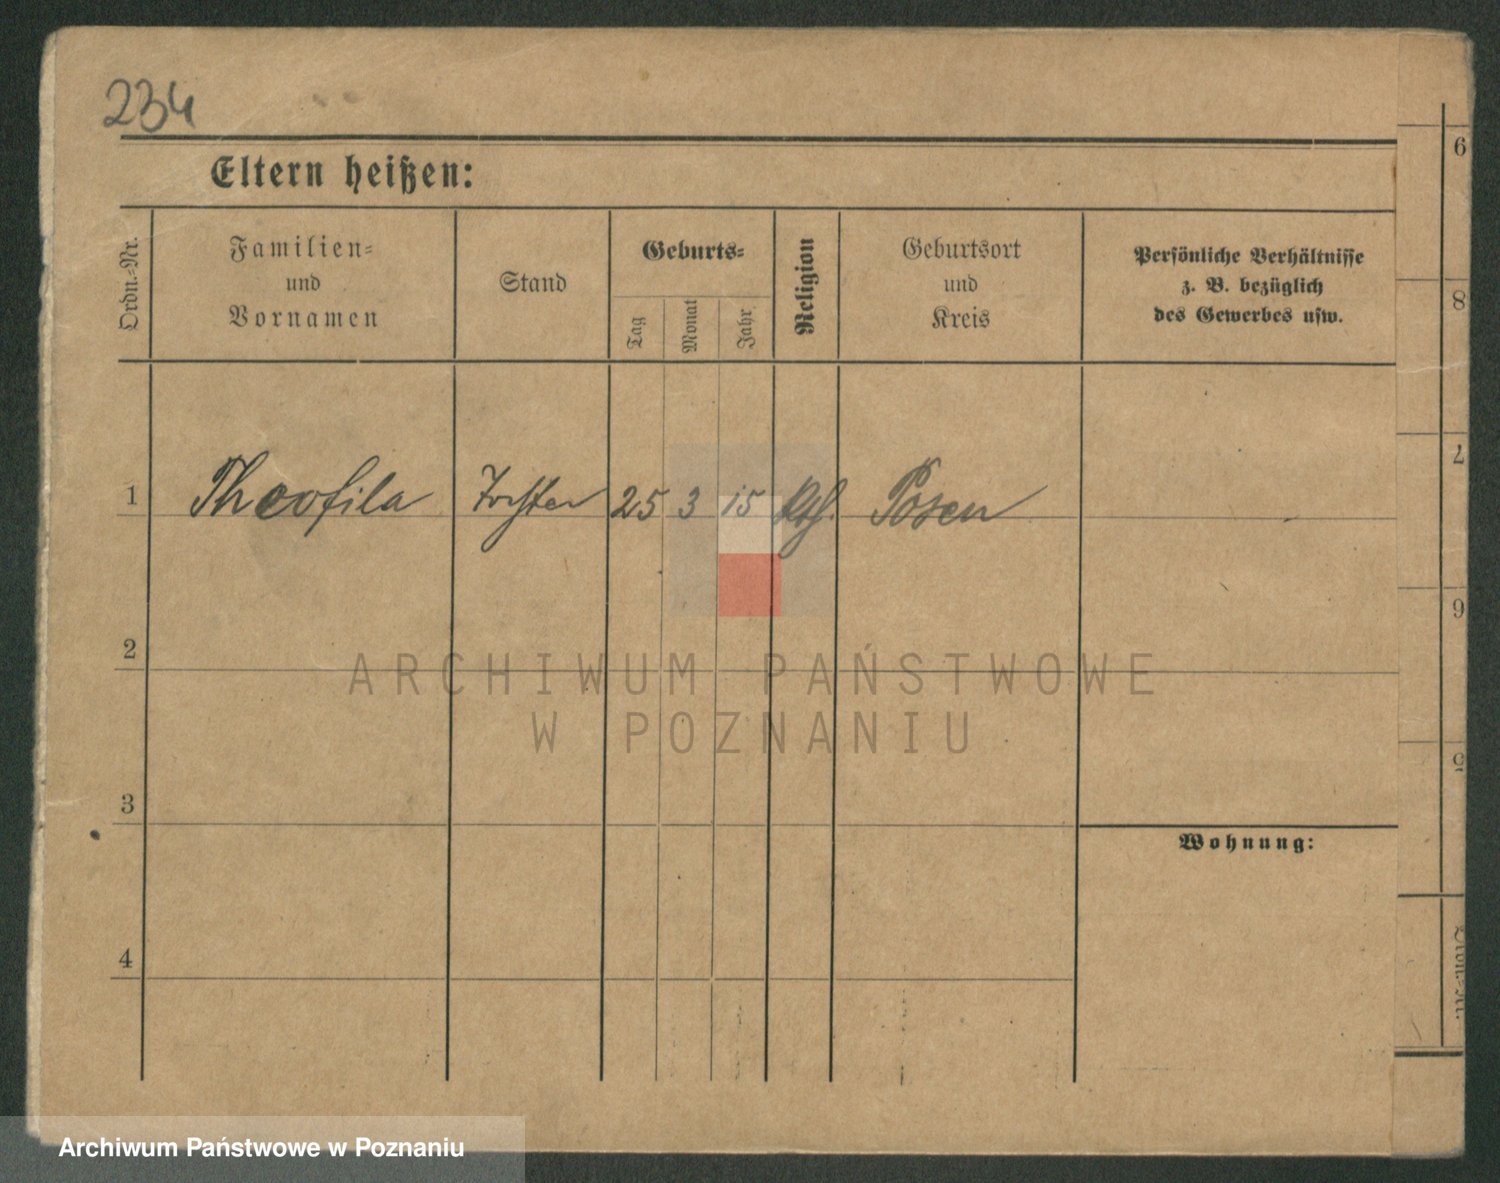 234
Eltern heißen:
Ordn.-Nr.
Familien-
und
Vornamen
Stand
Geburts-
Tag
Monat
Jahr
Religion
Geburtsort
und
Kreis
Persönliche Verhältnisse
z. B. bezüglich
des Gewerbes usw.
1 Theofila 25 3 15 Posen
2
3
4
Wohnung:
6
8
7
6
8
Ordn.-Nr.
ARCHIWUM PAŃSTWOWE
W POZNANIU
Archiwum Państwowe w Poznaniu